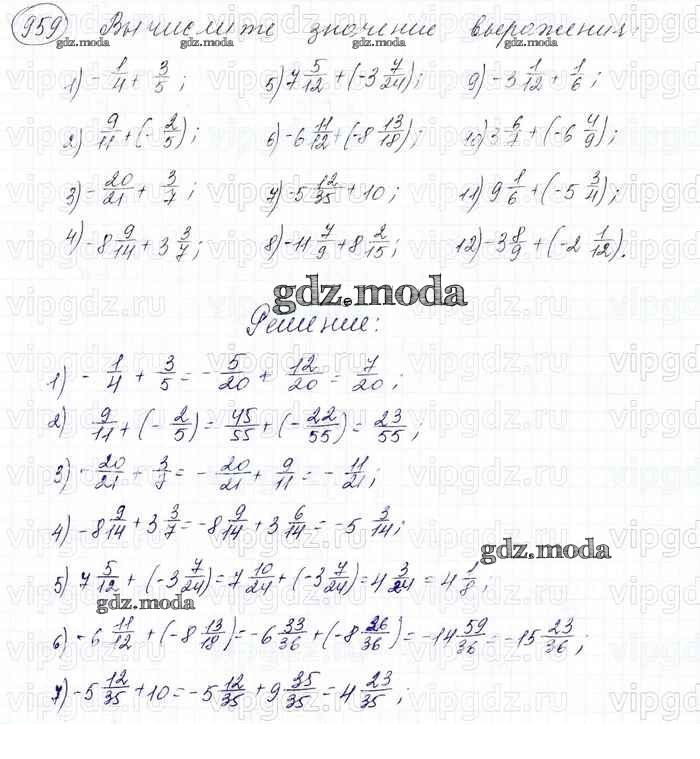 959) Вычислите значение выражения:
1) -1/4 + 3/5; 5) 7 5/12 + (-3 7/24); 9) -3 1/12 + 1/6;
2) 9/11 + (-2/5); 6) -6 11/12 + (-8 13/18); 10) 3 6/7 + (-6 4/9);
3) -20/21 + 3/7; 7) -5 12/35 + 10; 11) 9 1/6 + (-5 3/4);
4) -8 9/14 + 3 3/7; 8) -11 7/9 + 8 2/15; 12) -3 8/9 + (-2 1/12).
gdz.moda
Решение:
1) -1/4 + 3/5 = -5/20 + 12/20 = 7/20;
2) 9/11 + (-2/5) = 45/55 + (-22/55) = 23/55;
3) -20/21 + 3/7 = -20/21 + 9/11 = -11/21;
4) -8 9/14 + 3 3/7 = -8 9/14 + 3 6/14 = -5 3/14;
gdz.moda
5) 7 5/12 + (-3 7/24) = 7 10/24 + (-3 7/24) = 4 3/24 = 4 1/8;
gdz.moda
6) -6 11/12 + (-8 13/18) = -6 33/36 + (-8 26/36) = -14 59/36 = -15 23/36;
7) -5 12/35 + 10 = -5 12/35 + 9 35/35 = 4 23/35;